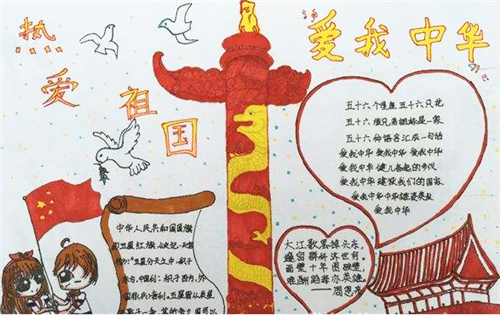 热
爱
祖
国
爱我中华
五十六个星座五十六只花
五十六族兄弟姐妹是一家
五十六种语言汇成一句话
爱我中华 爱我中华 爱我中华
爱我中华 健儿奋起的步伐
爱我中华 建设我们的国家
爱我中华 中华雄姿英发
爱我中华
大江歌罢掉头东，
邃密群科济世穷。
面壁十年图破壁，
难酬蹈海亦英雄
——周恩来
中华人民共和国国旗
五星红旗
"五星分天之中，积于
东方，中国利；积于西方，外